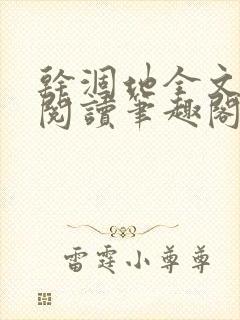 幹涸地全文
閱讀筆趣閣
雷霆小尊尊